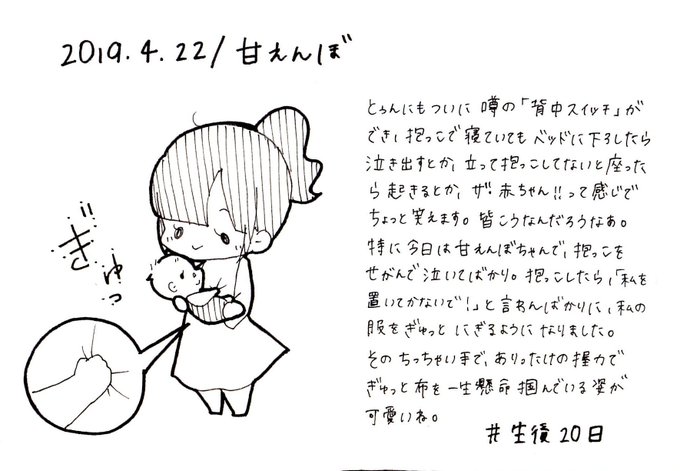 2019.4.22/甘えんぼ
とぅんにもついに噂の「背中スイッチ」が
でき、抱っこで寝ていてもベッドに下ろしたら
泣き出すとか、立って抱っこしてないと座った
ら起きるとか、ザ・赤ちゃん!!って感じで
ちょっと笑えます。皆こうなんだろうなあ。
特に今日は甘えんぼちゃんで、抱っこを
せがんで泣いてばかり。抱っこしたら、「私を
置いてかないで!」と言わんばかりに、私の
服をぎゅっとにぎるようになりました。
そのちっちゃい手で、ありったけの握力で
ぎゅっと布を一生懸命掴んでいる姿が
可愛いね。
#生後20日
ぎゅっ